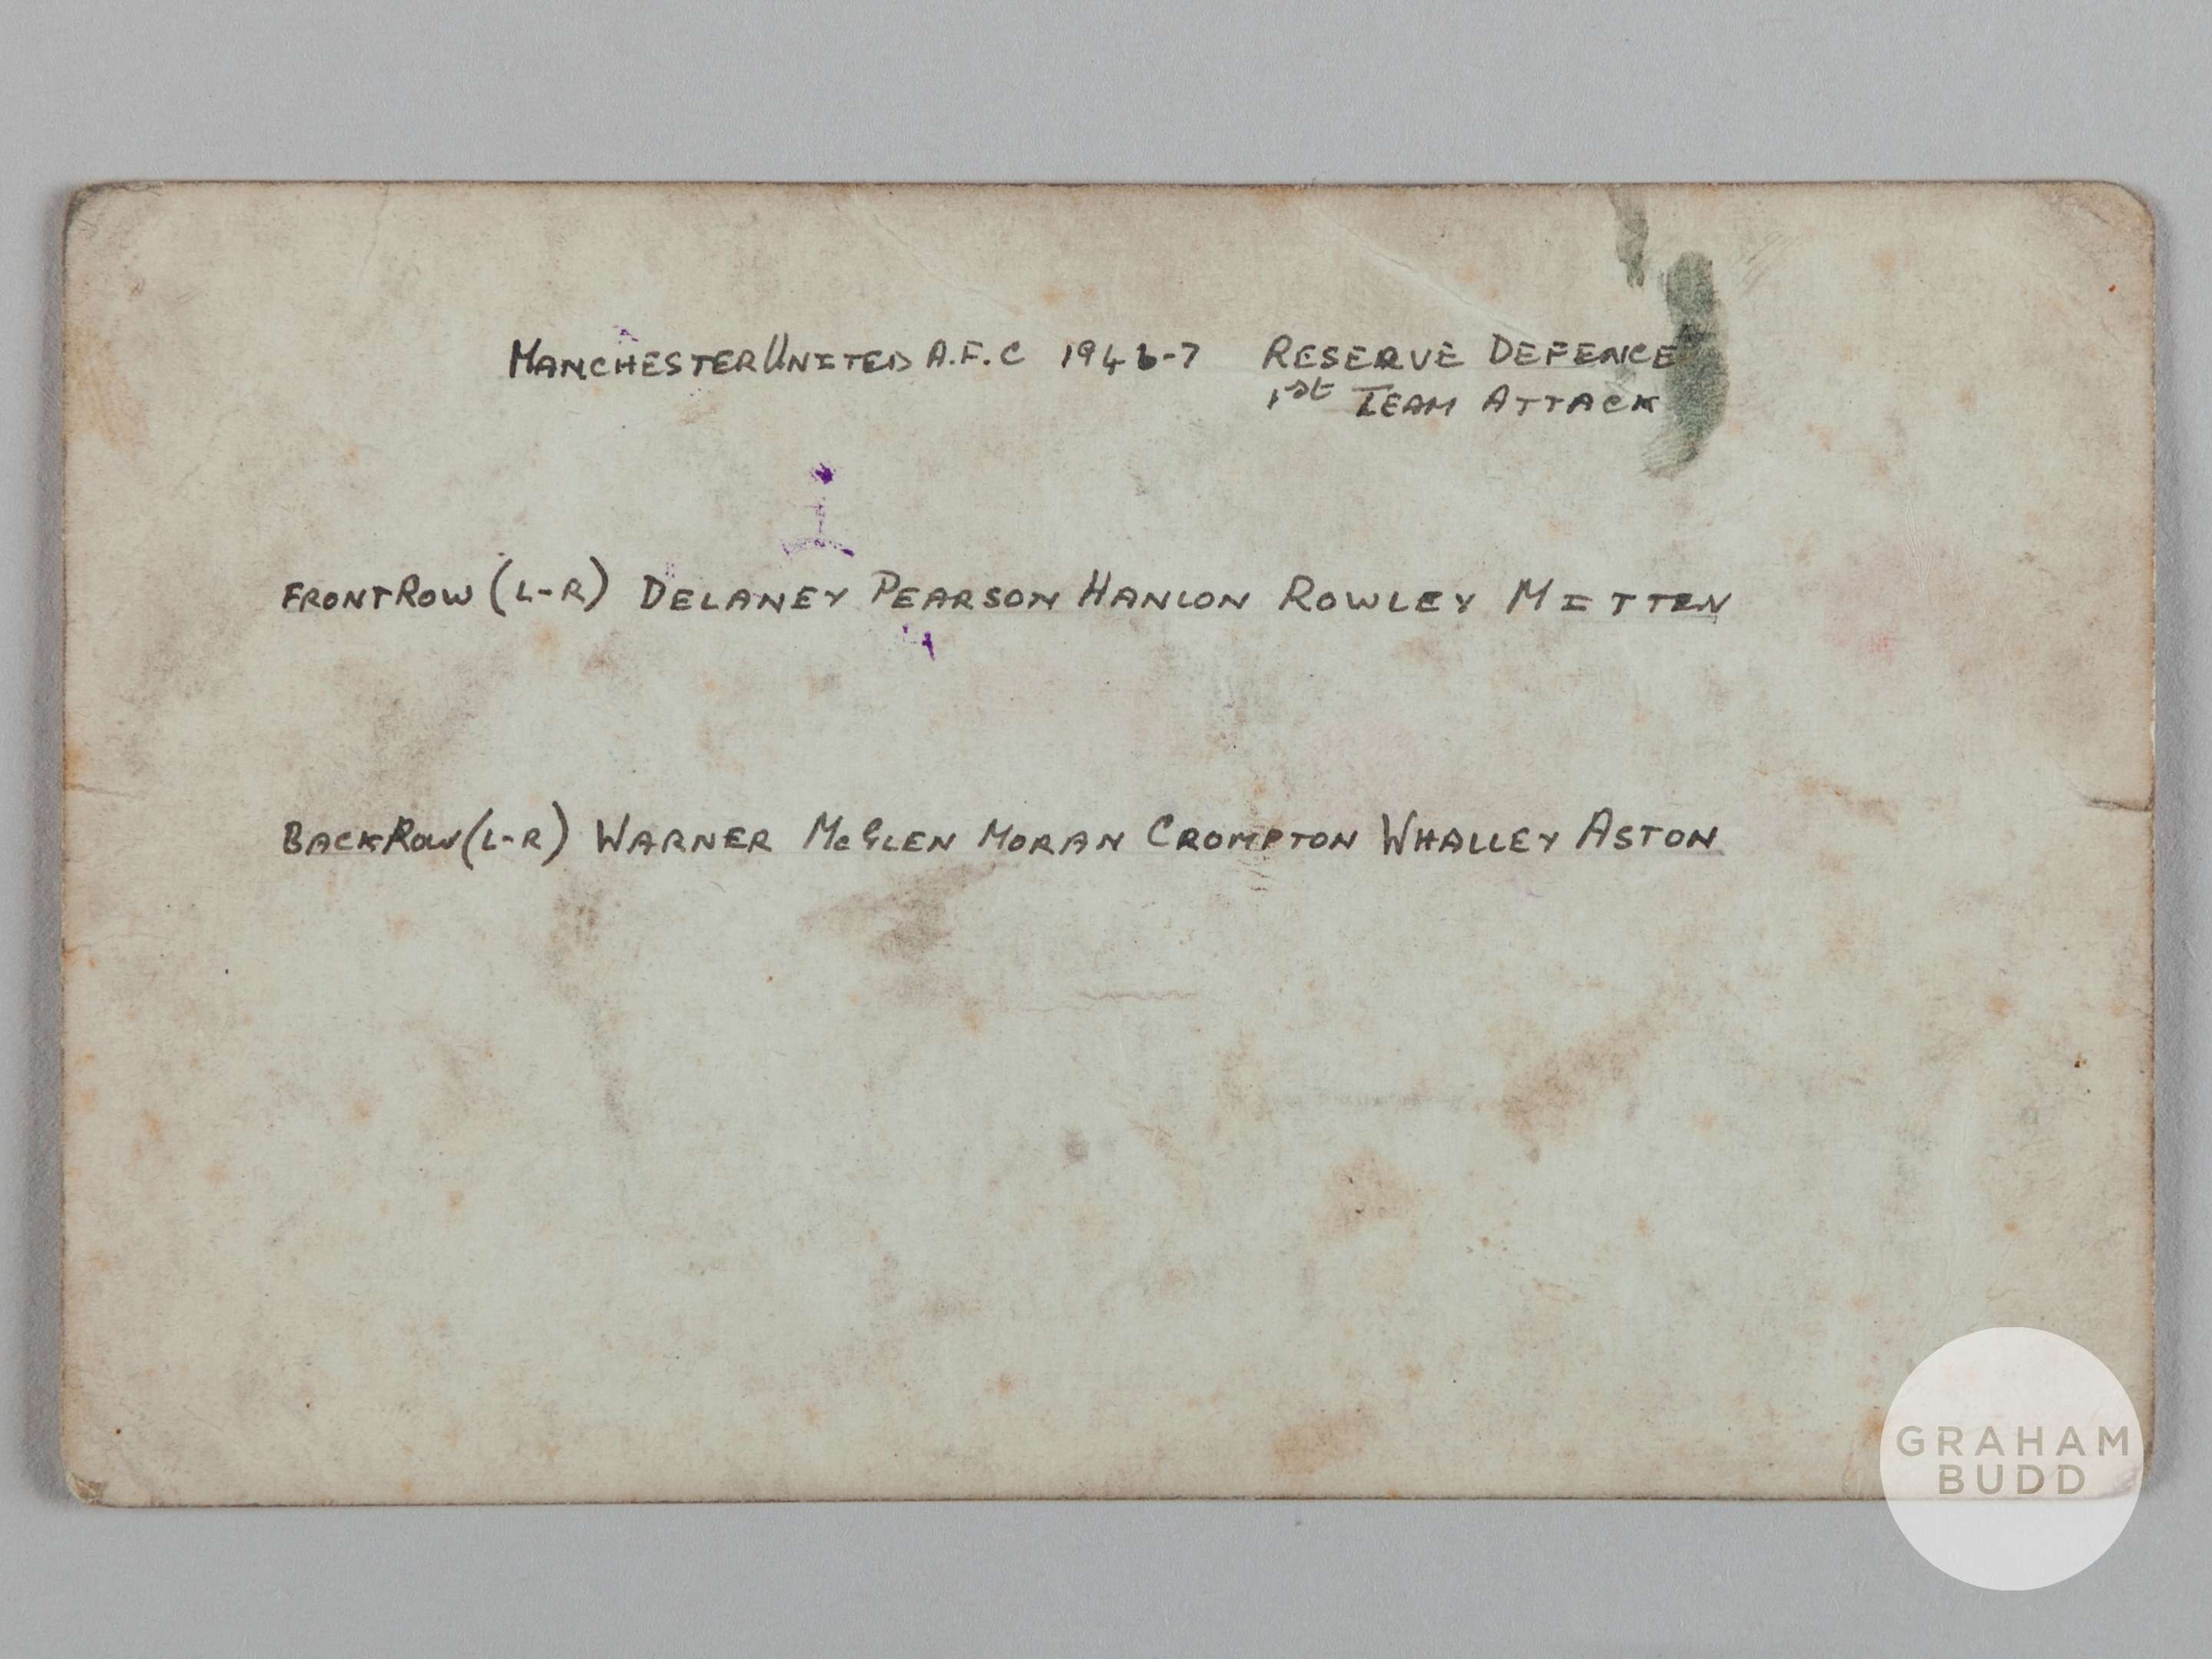 MANCHESTER UNITED A.F.C 1946-7 RESERVE DEFENCE
1st TEAM ATTACK
FRONT ROW (L-R) DELANEY PEARSON HANLON ROWLEY MITTEN
BACK ROW (L-R) WARNER McGLEN MORAN CROMPTON WHALLEY ASTON
GRAHAM
BUDD